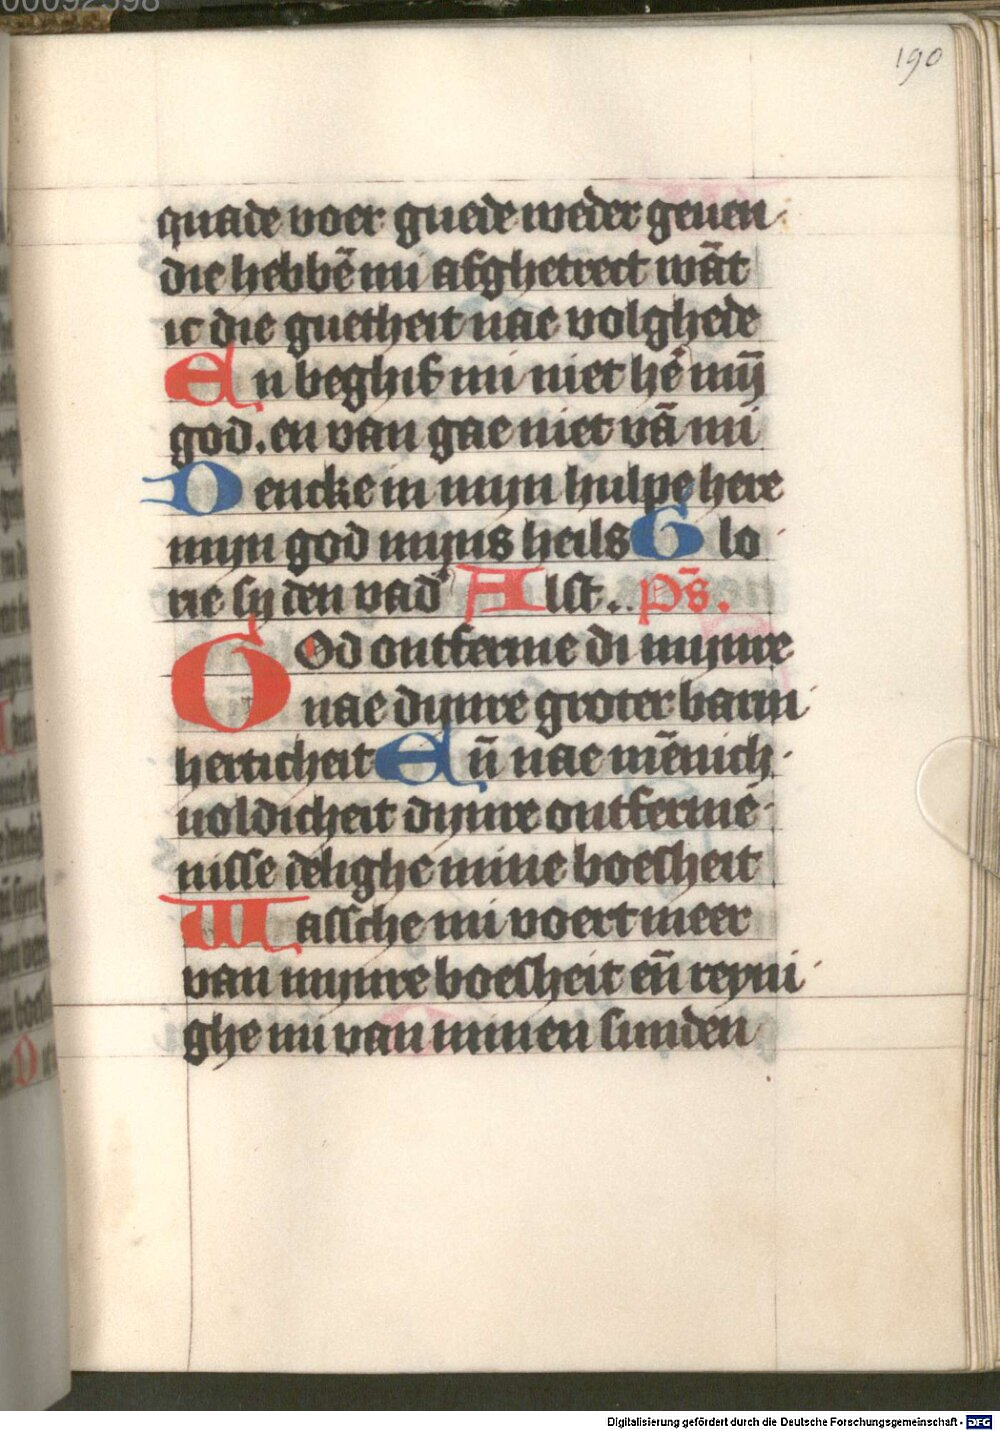 00092598
190
quade voer guede weder geuen
die hebbē mi afghetrect wāt
ic die guetheit nae volghede
En beghif mi niet hē mȳ
god. en van gae niet vā mi
Dencke in mijn hulpe here
mijn god mijns heils Glo
rie sij den vad' Alst.. ps̄.
GOd ontferme di mijnre
nae dijnre groter barm
herticheit Eñ nae mēnich
uoldicheit dijnre ontfermē
nisse delighe mine boesheit
Wassche mi voert meer
van mijnre boesheit eñ reyni
ghe mi van minen sunden
Digitalisierung gefördert durch die Deutsche Forschungsgemeinschaft - DFG